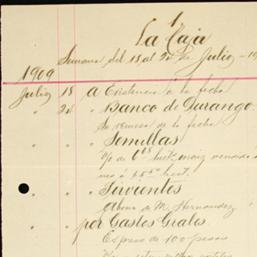 1
La Caja
Semana del 18 al 24 de Julio - 19
1909
Julio 18 a Existencia a la fecha
" 24 " Banco de Durango
Su remesa de la fecha
" " " Semillas
" " " Sirvientes
Abono de M. Hernandez
" " por Gastos Grales
Expreso de 100 pesos